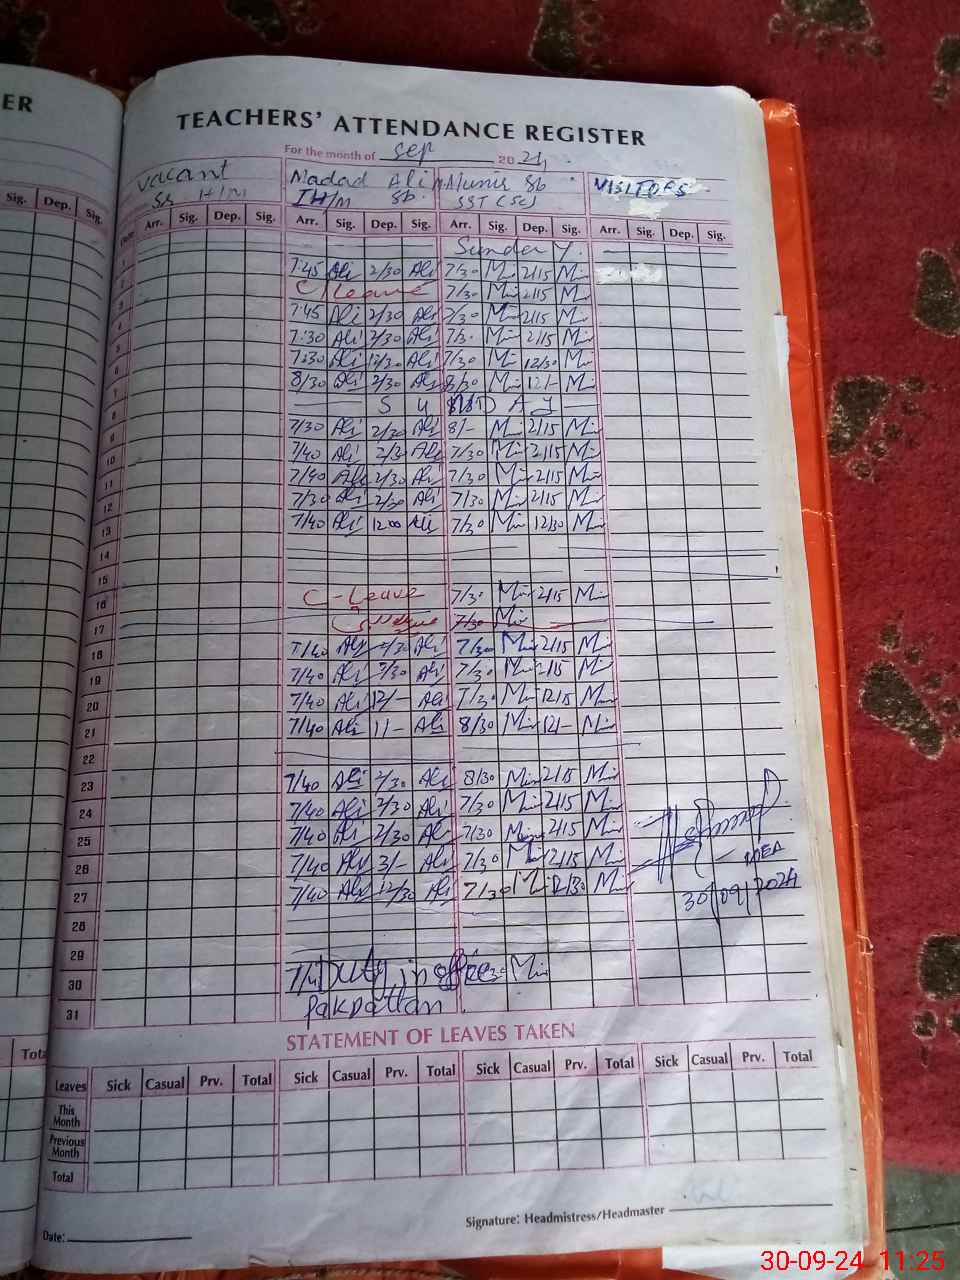 ER
TEACHERS' ATTENDANCE REGISTER
For the month of Sep 2024
vacant Madad Ali Munir Sb VISITORS
SS H/M IH/M Sb. SST (SC)
Sig. Dep. Sig. Date Arr. Sig. Dep. Sig. Arr. Sig. Dep. Sig. Arr. Sig. Dep. Sig. Arr. Sig. Dep. Sig.
1 Sunday
2 7:45 Ali 2/30 Ali 7/30 Min 2/15 Min
3 C/leave 7/30 Min 2/15 Min
4 7:45 Ali 2/30 Ali 7/30 Min 2/15 Min
5 7:30 Ali 2/30 Ali 7/30 Min 2/15 Min
6 7:30 Ali 12/30 Ali 7/30 Min 12/30 Min
7 8/30 Ali 2/30 Ali 8/30 Min 12/- Min
8 SUNDAY
9 7/30 Ali 2/30 Ali 8/- Min 2/15 Min
10 7/40 Ali 2/30 Ali 7/30 Min 2/15 Min
11 7/40 Ali 2/30 Ali 7/30 Min 2/15 Min
12 7/30 Ali 2/30 Ali 7/30 Min 2/15 Min
13 7/40 Ali 1200 Ali 7/30 Min 12/30 Min
14
15
16 C-Leave 7/30 Min 2/15 Min
17 7/30 Min
18 7/40 Ali 2/30 Ali 7/30 Min 2/15 Min
19 7/40 Ali 2/30 Ali 7/30 Min 2/15 Min
20 7/40 Ali 12/- Ali 7/30 Min 12/15 Min
21 7/40 Ali 11- Ali 8/30 Min 12/- Min
22
23 7/40 Ali 2/30 Ali 8/30 Min 2/15 Min
24 7/40 Ali 2/30 Ali 7/30 Min 2/15 Min
25 7/40 Ali 2/30 Ali 7/30 Min 2/15 Min
26 7/40 Ali 3/- Ali 7/30 Min 2/15 Min
27 7/40 Ali 12/30 Ali 7/30 Min 12/30 Min
MEA
30/09/2024
28
29
30 Duty in office Min
31 Pakpattan
STATEMENT OF LEAVES TAKEN
Total Leaves Sick Casual Prv. Total Sick Casual Prv. Total Sick Casual Prv. Total Sick Casual Prv. Total
This Month
Previous Month
Total
Signature: Headmistress/Headmaster
Date:
30-09-24 11:25